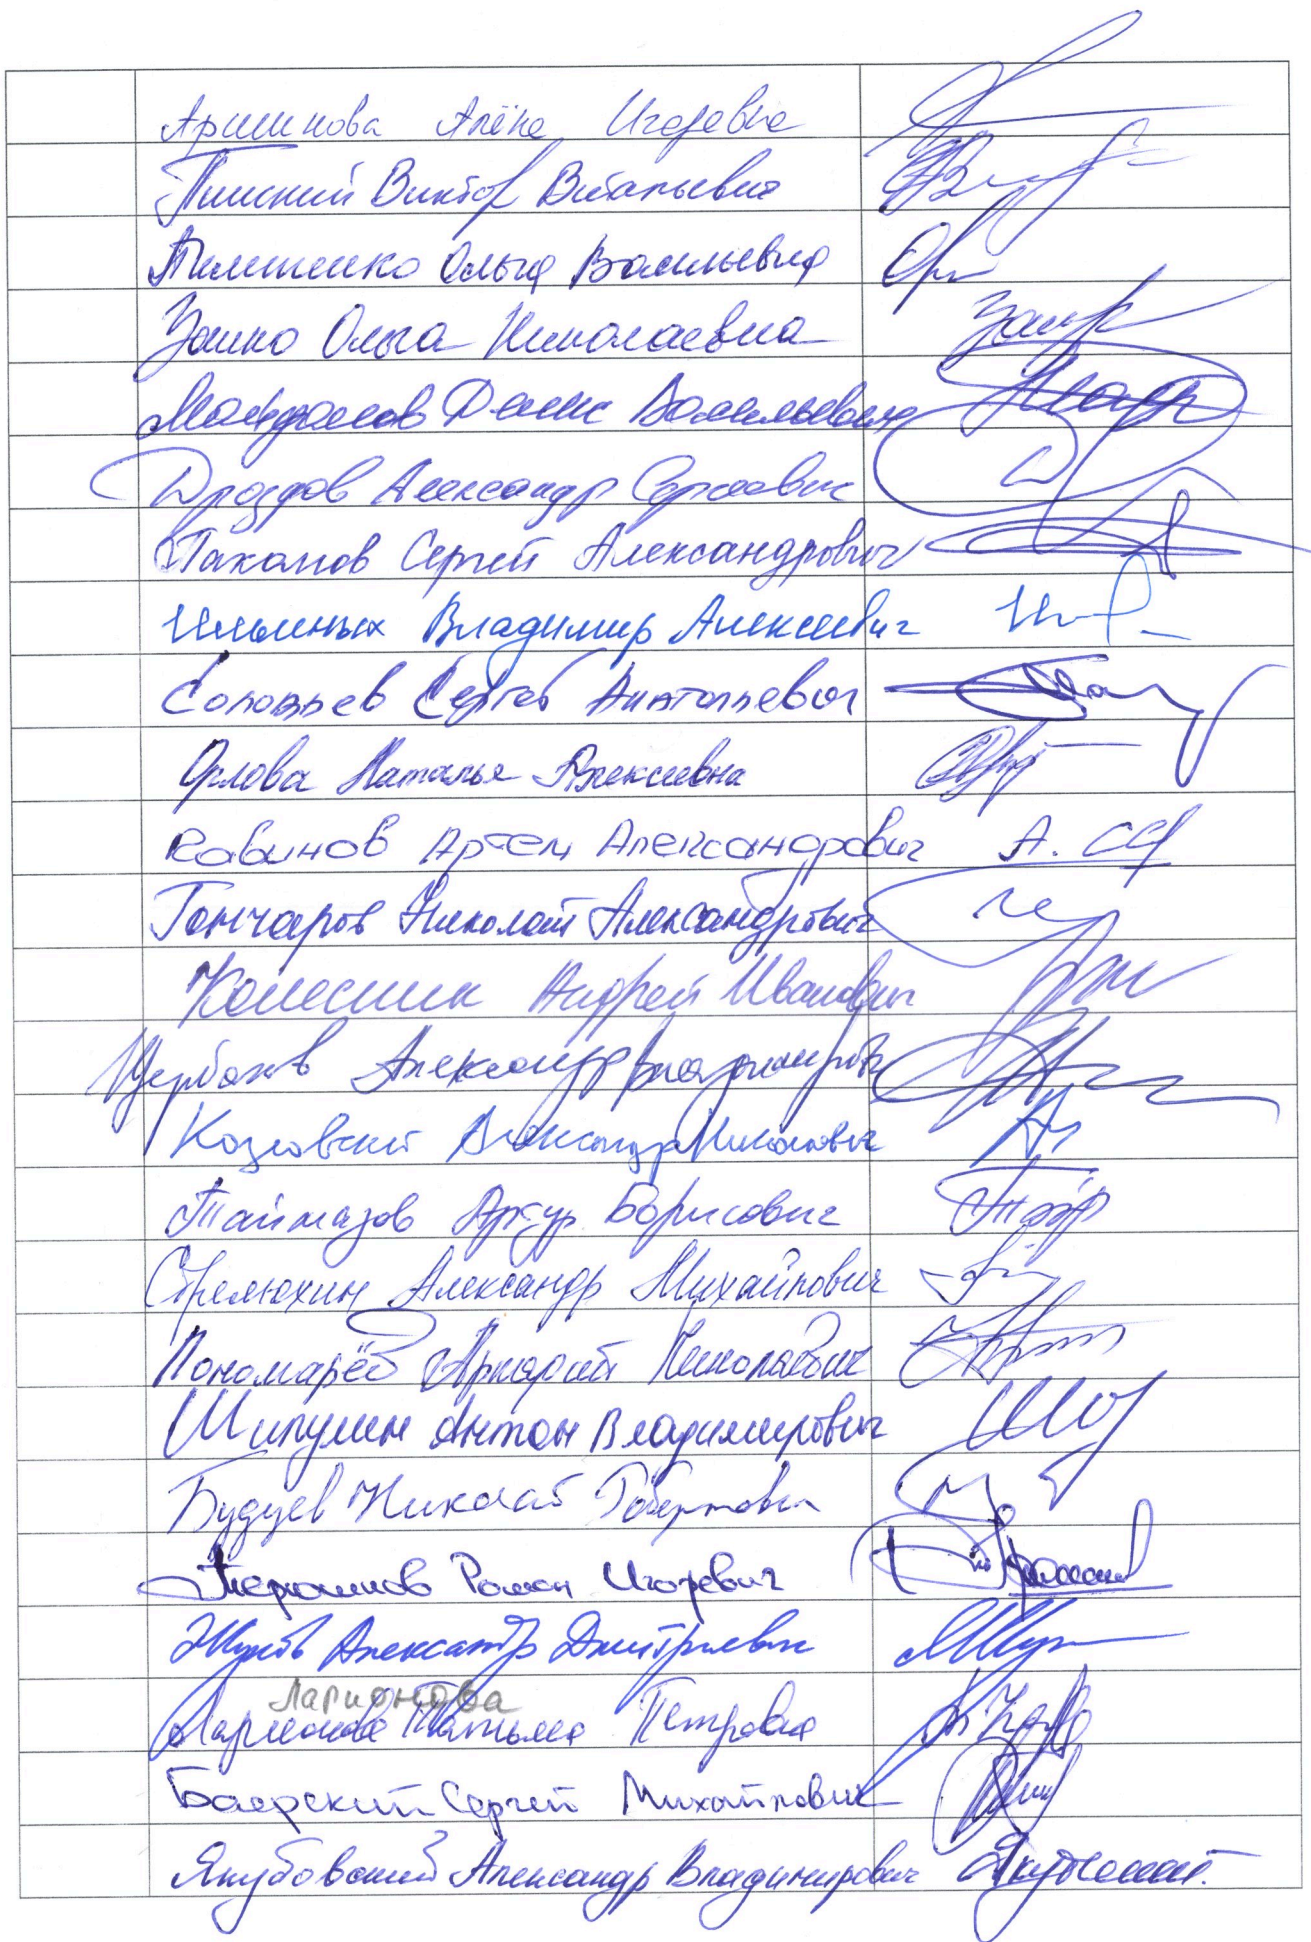 Аршинова Алёна Игоревна
Пинский Виктор Витальевич
Пилипенко Ольга Васильевна
Занко Ольга Николаевна
Денис Васильевич
Дроздов Александр Сергеевич
Пахомов Сергей Александрович
Ильиных Владимир Алексеевич
Соловьев Сергей Анатольевич
Орлова Наталья Алексеевна
Кавинов Артем Александрович
Гончаров Николай Александрович
Колесник Андрей Иванович
Щербаков Александр Владимирович
Козловский Александр Николаевич
Таймазов Артур Борисович
Стрелюхин Александр Михайлович
Пономарёв Аркадий Николаевич
Шипулин Антон Владимирович
Будуев Николай Робертович
Терюшков Роман Игоревич
Жуков Александр Дмитриевич
Ларионова
Ларионова Татьяна Петровна
Боярский Сергей Михайлович
Якубовский Александр Владимирович